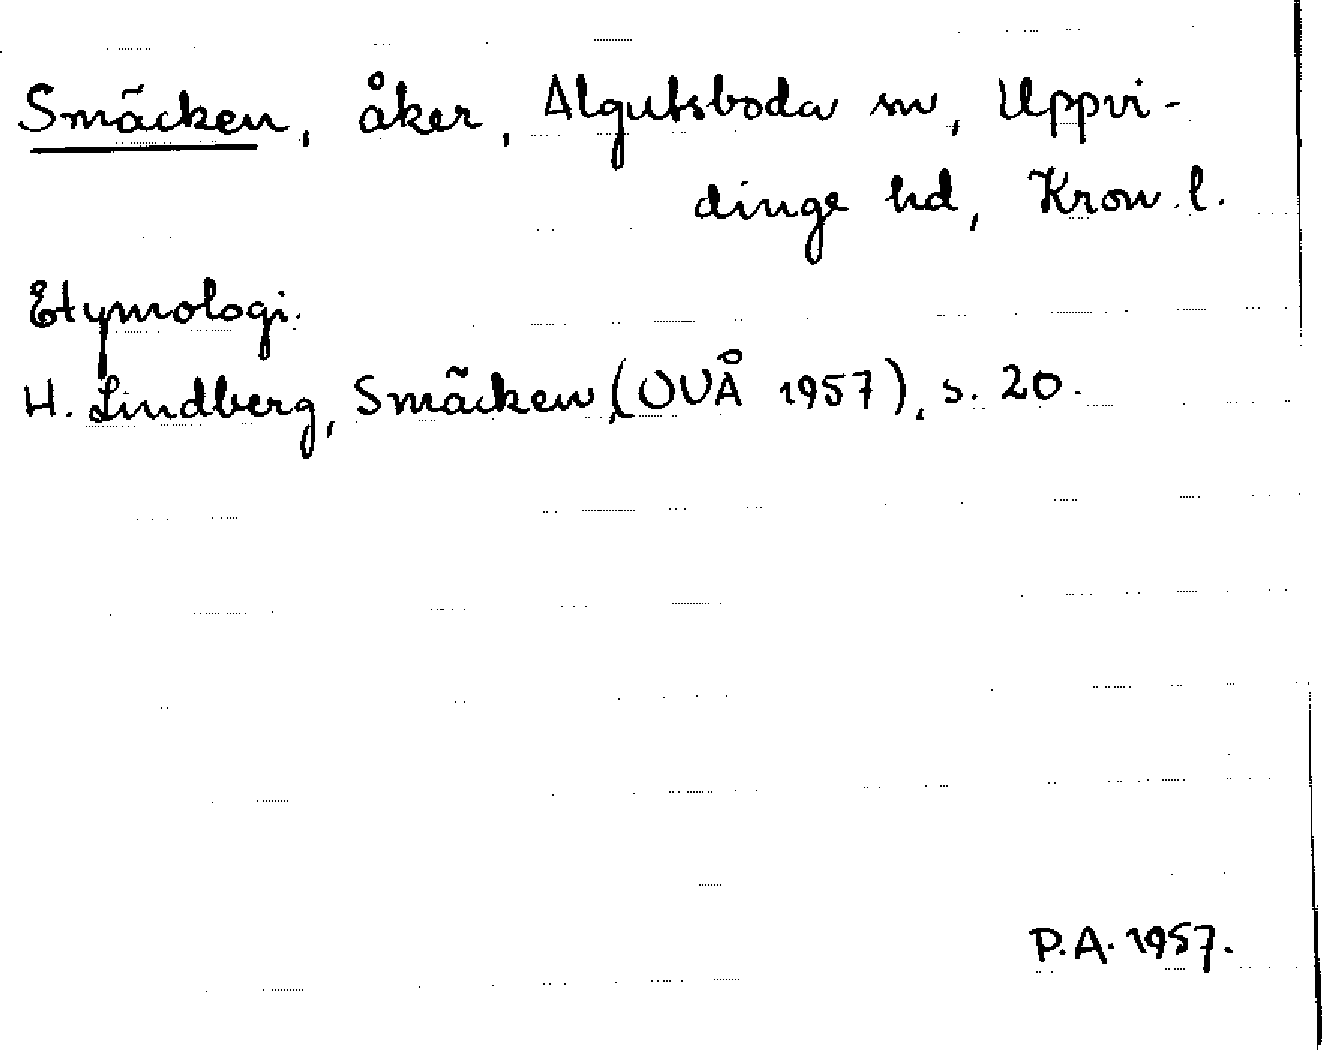 Smäcken, åker, Algutsboda sn, Uppvi-
dinge hd, Kron. l.
Etymologi.
H. Lindberg, Smäcken (OUÅ 1957), s. 20.
P.A. 1957.